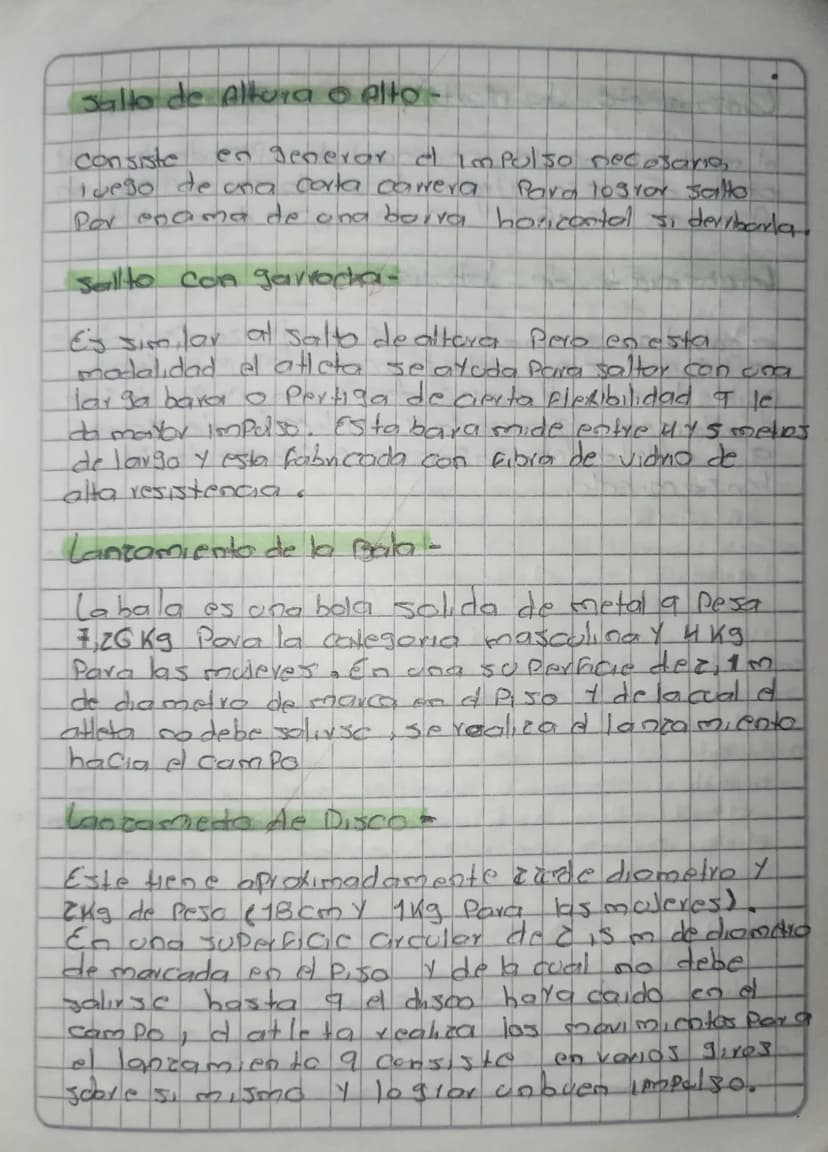 salto de Altura o Alto-
consiste en generar el impulso necesario,
luego de una corta carrera Para lograr salto
Por encima de una barra horizontal si derribarla.
salto con garrocha-
Es similar al salto de altura Pero en esta
modalidad el atleta se ayuda Para saltar con una
larga bara o Pertiga de cierta Flexibilidad q le
da mayor impulso. Esta bara mide entre 4 y 5 metros
de largo y esta Fabricada con Fibra de vidrio de
alta resistencia.
Lanzamiento de la Bala-
La bala es una bola solida de metal q Pesa
7,26 Kg Para la categoria masculina y 4 Kg
Para las mujeres. En una superficie de 2,1 m
de diametro de marca en el Piso y de la cual el
atleta no debe salirse, se realiza el lanzamiento
hacia el camPo
Lanzameto de Disco-
Este tiene aproximadamente de diametro y
2Kg de Peso (18cm y 1Kg Para las mujeres).
En una superficie circular de 2,5 m de diametro
de marcada en el Piso y de la cual no debe
salirse hasta q el disco haya caido en el
camPo, el atleta realiza los movimientos Para
el lanzamiento q consiste en varios giros
sobre si mismo y lograr un buen impulso.